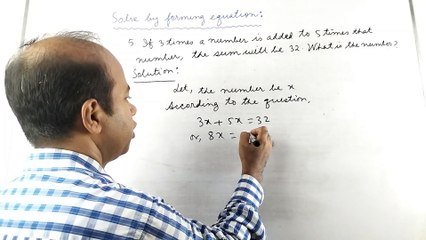 Solve by forming equation:
5. If 3 times a number is added to 5 times that
number, the sum will be 32. What is the number?
Solution:
Let, the number be x
According to the question,
3x + 5x = 32
or, 8x =